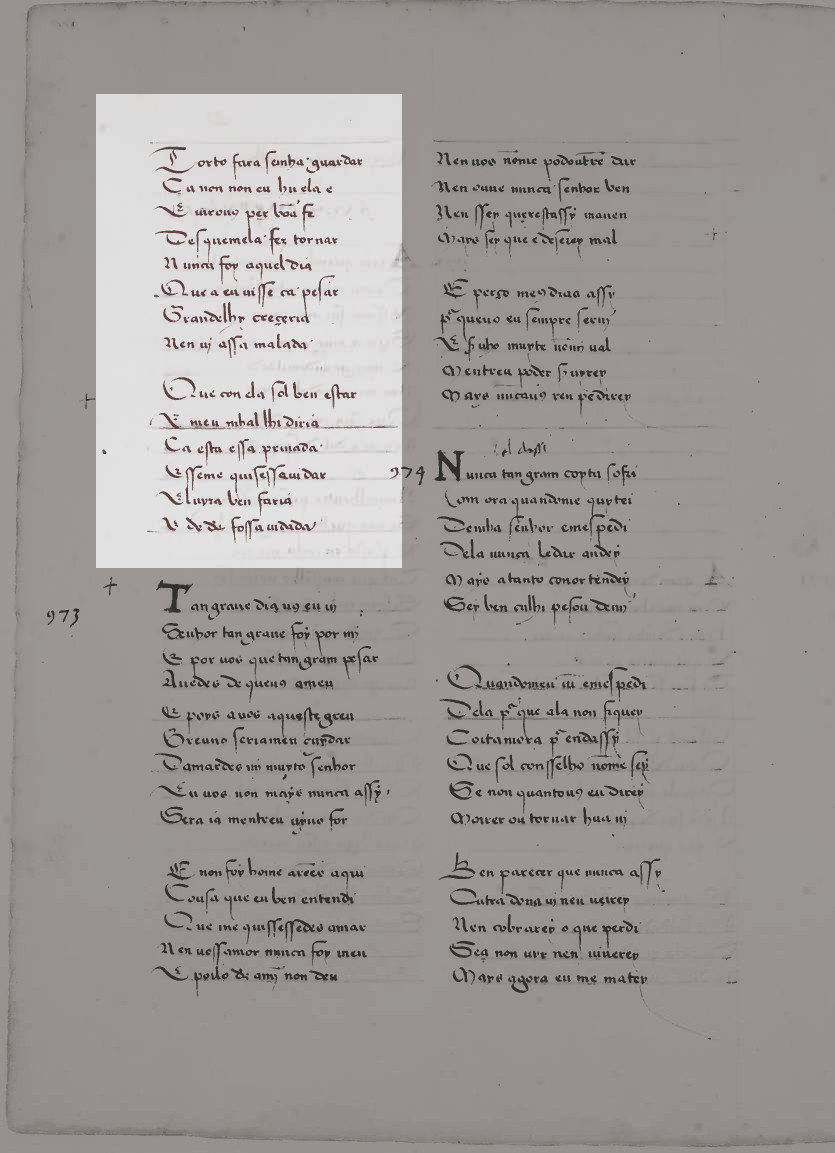 Torto fara senha guardar
Ca non non eu hu ela e
E uirouo per boã fe
Desquemela fez tornar
Nunca foy aquel dia
Que a eu uisse ca pesar
Grandelhy creçeria
Nen uj assa malada
Que con ela sol ben estar
E meu mhal lhi diria
Ca esta essa priuada
Esseme quisessaiudar
Eluyra ben faria
E de fossa uidada
973
Tan graue dia uꝯ eu uj
Senhor tan graue foy por mi
E por uos que tan gram pesar
Auedes de queuꝯ ameu
E poys a uos aquestegreu
Greuuo seriamen cuydar
Damardes mi muyto senhor
Eu uos non mays nunca assy
Sera ia mentreu uyuo for
E non foy home aqui
Cousa que eu ben entendi
Que me quissessedes amar
Nen uossamor nunca foy meu
E poilo ds amj non deu
Nen uos nome podoutre dar
Nen ouue nunca senhor ben
Nen ssey
Mays sey que e deserey mal
E perço meꝯ dias assy
queuꝯ eu sempre
muyte ual
Mentreu poder
Mays nuncauꝯ ren pedirey
974
Nunca tan gram coyta sofri
Com ora quandome quytei
Demha senhor emespedi
Dela nunca ledar andey
Mays atanto conortendey
Sey ben culhi pesou demi
Quandomeu emespedi
Dela que ala non fiquey
Coitamora endassy
Que sol consselho nome sey
Se non quantouꝯ eu direy
Morrer ou tornar hua uj
Ben parecer que nunca assy
Outra dona uj nen ueirey
Nen cobrarey o que perdi
Sea non uyr nen uiuerey
Mays agora eu me matey